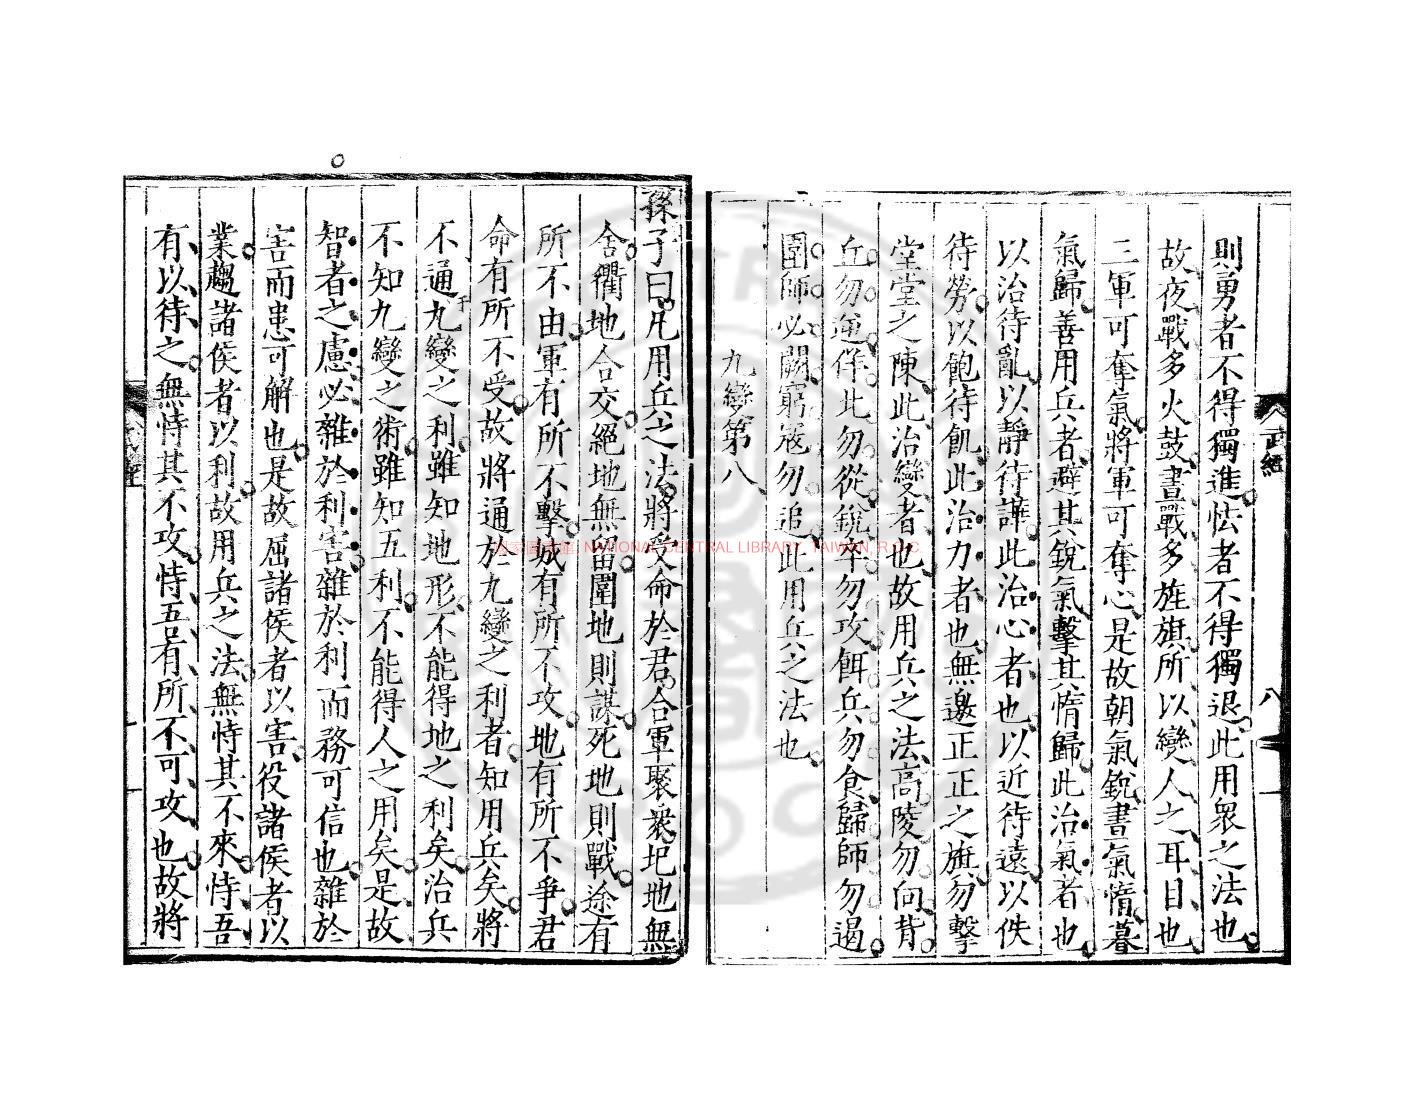 則勇者不得獨進怯者不得獨退此用衆之法也
故夜戰多火鼓晝戰多旌旗所以變人之耳目也
三軍可奪氣將軍可奪心是故朝氣銳晝氣惰暮
氣歸善用兵者避其銳氣擊其惰歸此治氣者也
以治待亂以靜待譁此治心者也以近待遠以佚
待勞以飽待飢此治力者也無邀正正之旗勿擊
堂堂之陳此治變者也故用兵之法高陵勿向背
丘勿逆佯北勿從銳卒勿攻餌兵勿食歸師勿遏
圍師必闕窮寇勿追此用兵之法也
九變第八
孫子曰凡用兵之法將受命於君合軍聚衆圮地無
舍衢地合交絕地無留圍地則謀死地則戰途有
所不由軍有所不擊城有所不攻地有所不爭君
命有所不受故將通於九變之利者知用兵矣將
不通於九變之利雖知地形不能得地之利矣治兵
不知九變之術雖知五利不能得人之用矣是故
智者之慮必雜於利害雜於利而務可信也雜於
害而患可解也是故屈諸侯者以害役諸侯者以
業趨諸侯者以利故用兵之法無恃其不來恃吾
有以待之無恃其不攻恃吾有所不可攻也故將
武經
八
NATIONAL CENTRAL LIBRARY, TAIWAN, R.O.C.